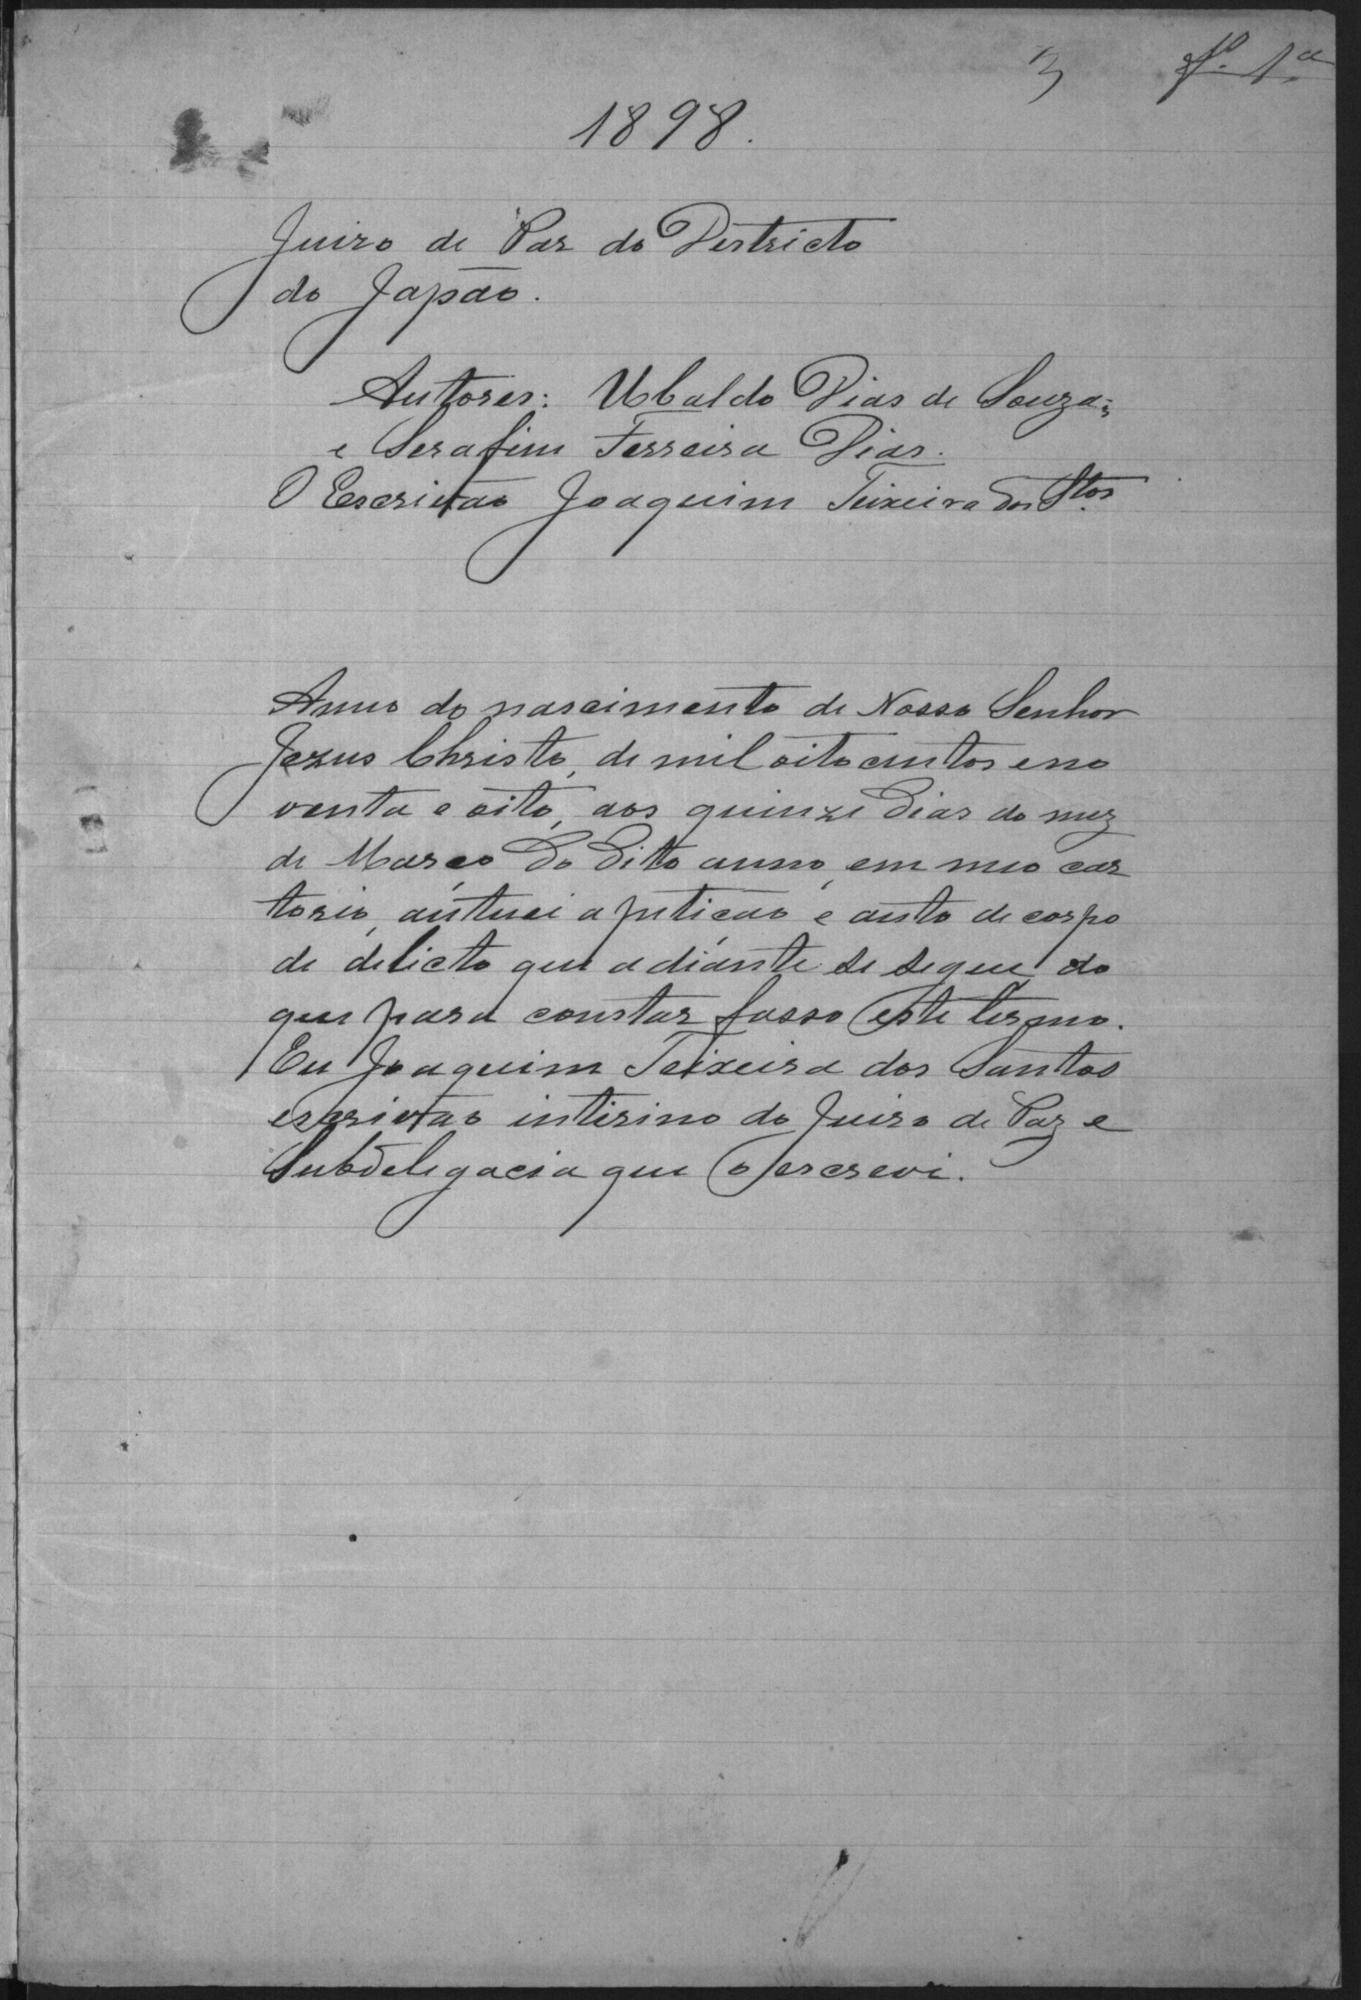 3 fª 1ª
1898.
Juizo de Paz do Destricto
do Japão.
Autores: Ubaldo Dias de Souza;
e Serafim Ferreira Dias.
O Escrivão Joaquim Teixeira dos Stos
Anno do nascimento de Nosso Senhor
Jezus Christo, de mil oito centos e no
venta e oito, aos quinze dias do mez
de Março do dito anno, em meo car
torio, autuei a peticão e auto de corpo
de delicto que adiante se segue, do
que para constar fasso este termo.
Eu Joaquim Teixeira dos Santos
escrivão interino do Juizo de Paz e
Subdelegacia que o escrevi.